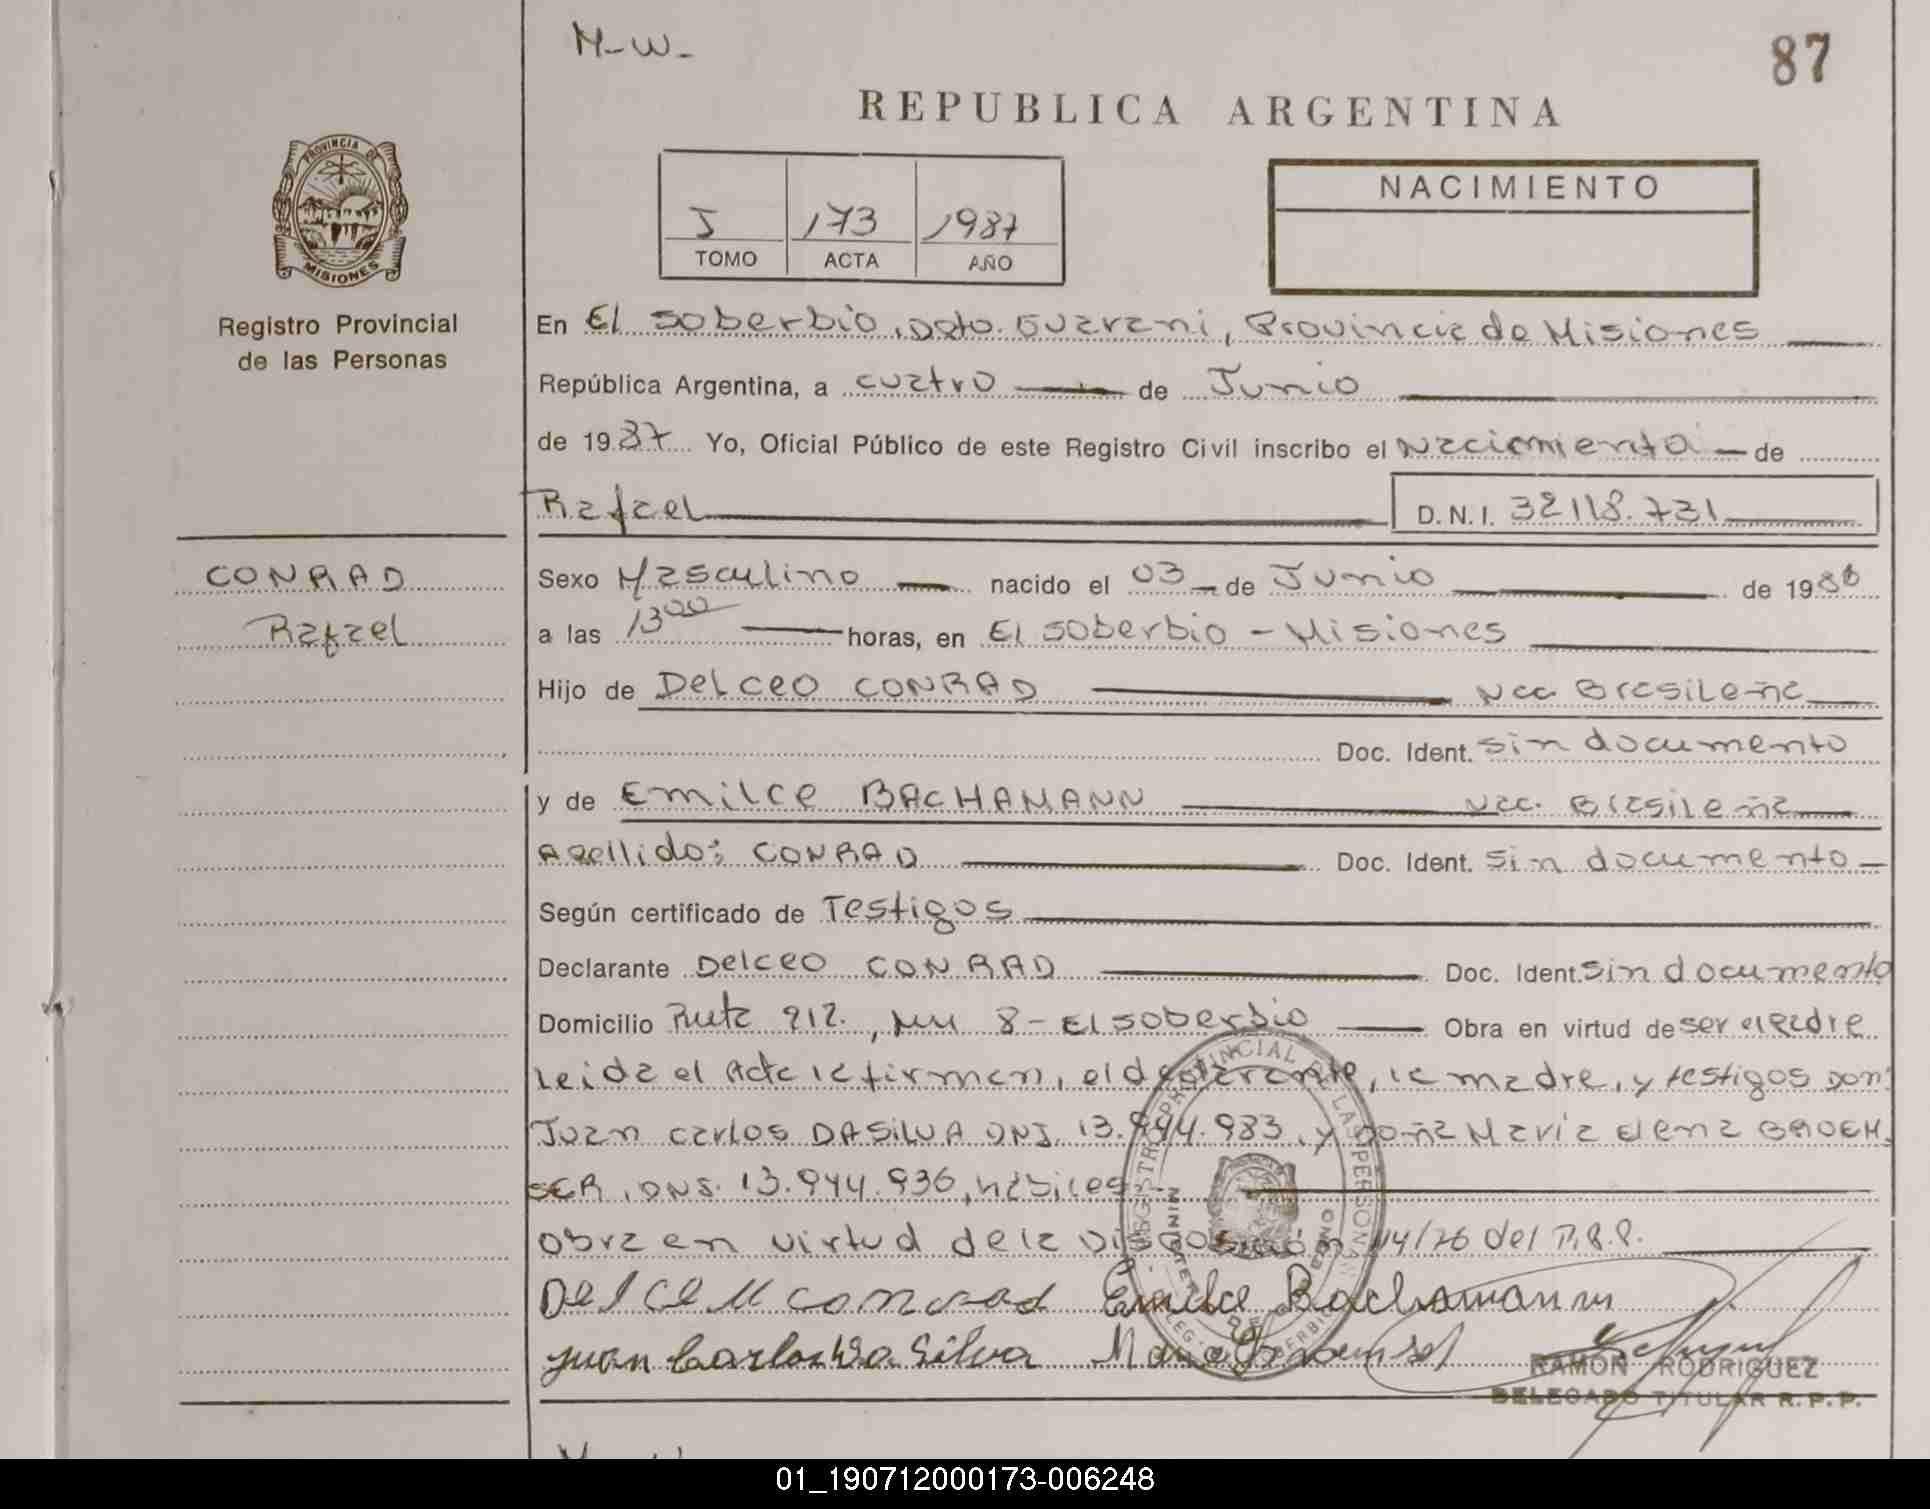 M-W-
87
REPUBLICA ARGENTINA
PROVINCIA DE
MISIONES
Registro Provincial
de las Personas
J 173 1987
TOMO ACTA AÑO
NACIMIENTO
En El soberbio, Dpto. Guarani, Provincia de Misiones
República Argentina, a cuatro de Junio
de 1987 Yo, Oficial Público de este Registro Civil inscribo el Nacimiento de
Rafael D.N.I. 32118.731
CONRAD
Rafael
Sexo Masculino nacido el 03 de Junio de 1986
a las 1300 horas, en El soberbio - Misiones
Hijo de Delceo CONRAD Nac. Brasileña
Doc. Ident. sin documento
y de Emilce BACHAMANN Nac. Brasileña
Apellido: CONRAD Doc. Ident. sin documento
Según certificado de Testigos
Declarante Delceo CONRAD Doc. Ident. sin documento
Domicilio Ruta 212., KM 8 - El soberbio Obra en virtud de ser el padre
Leida el Acta la firman, el declarante, la madre, y testigos Don
Juan Carlos DASILVA DNI. 13.944.983, y doña Maria Elena
SER, DNI. 13.944.936, hábiles.-
Obra en virtud de la Disposición 14/76 del R.P.P.
Delceu conrad Emilce Bachamann
Juan Carlos Da Silva Maria
RAMON RODRIGUEZ
DELEGADO TITULAR R.P.P.
01_190712000173-006248